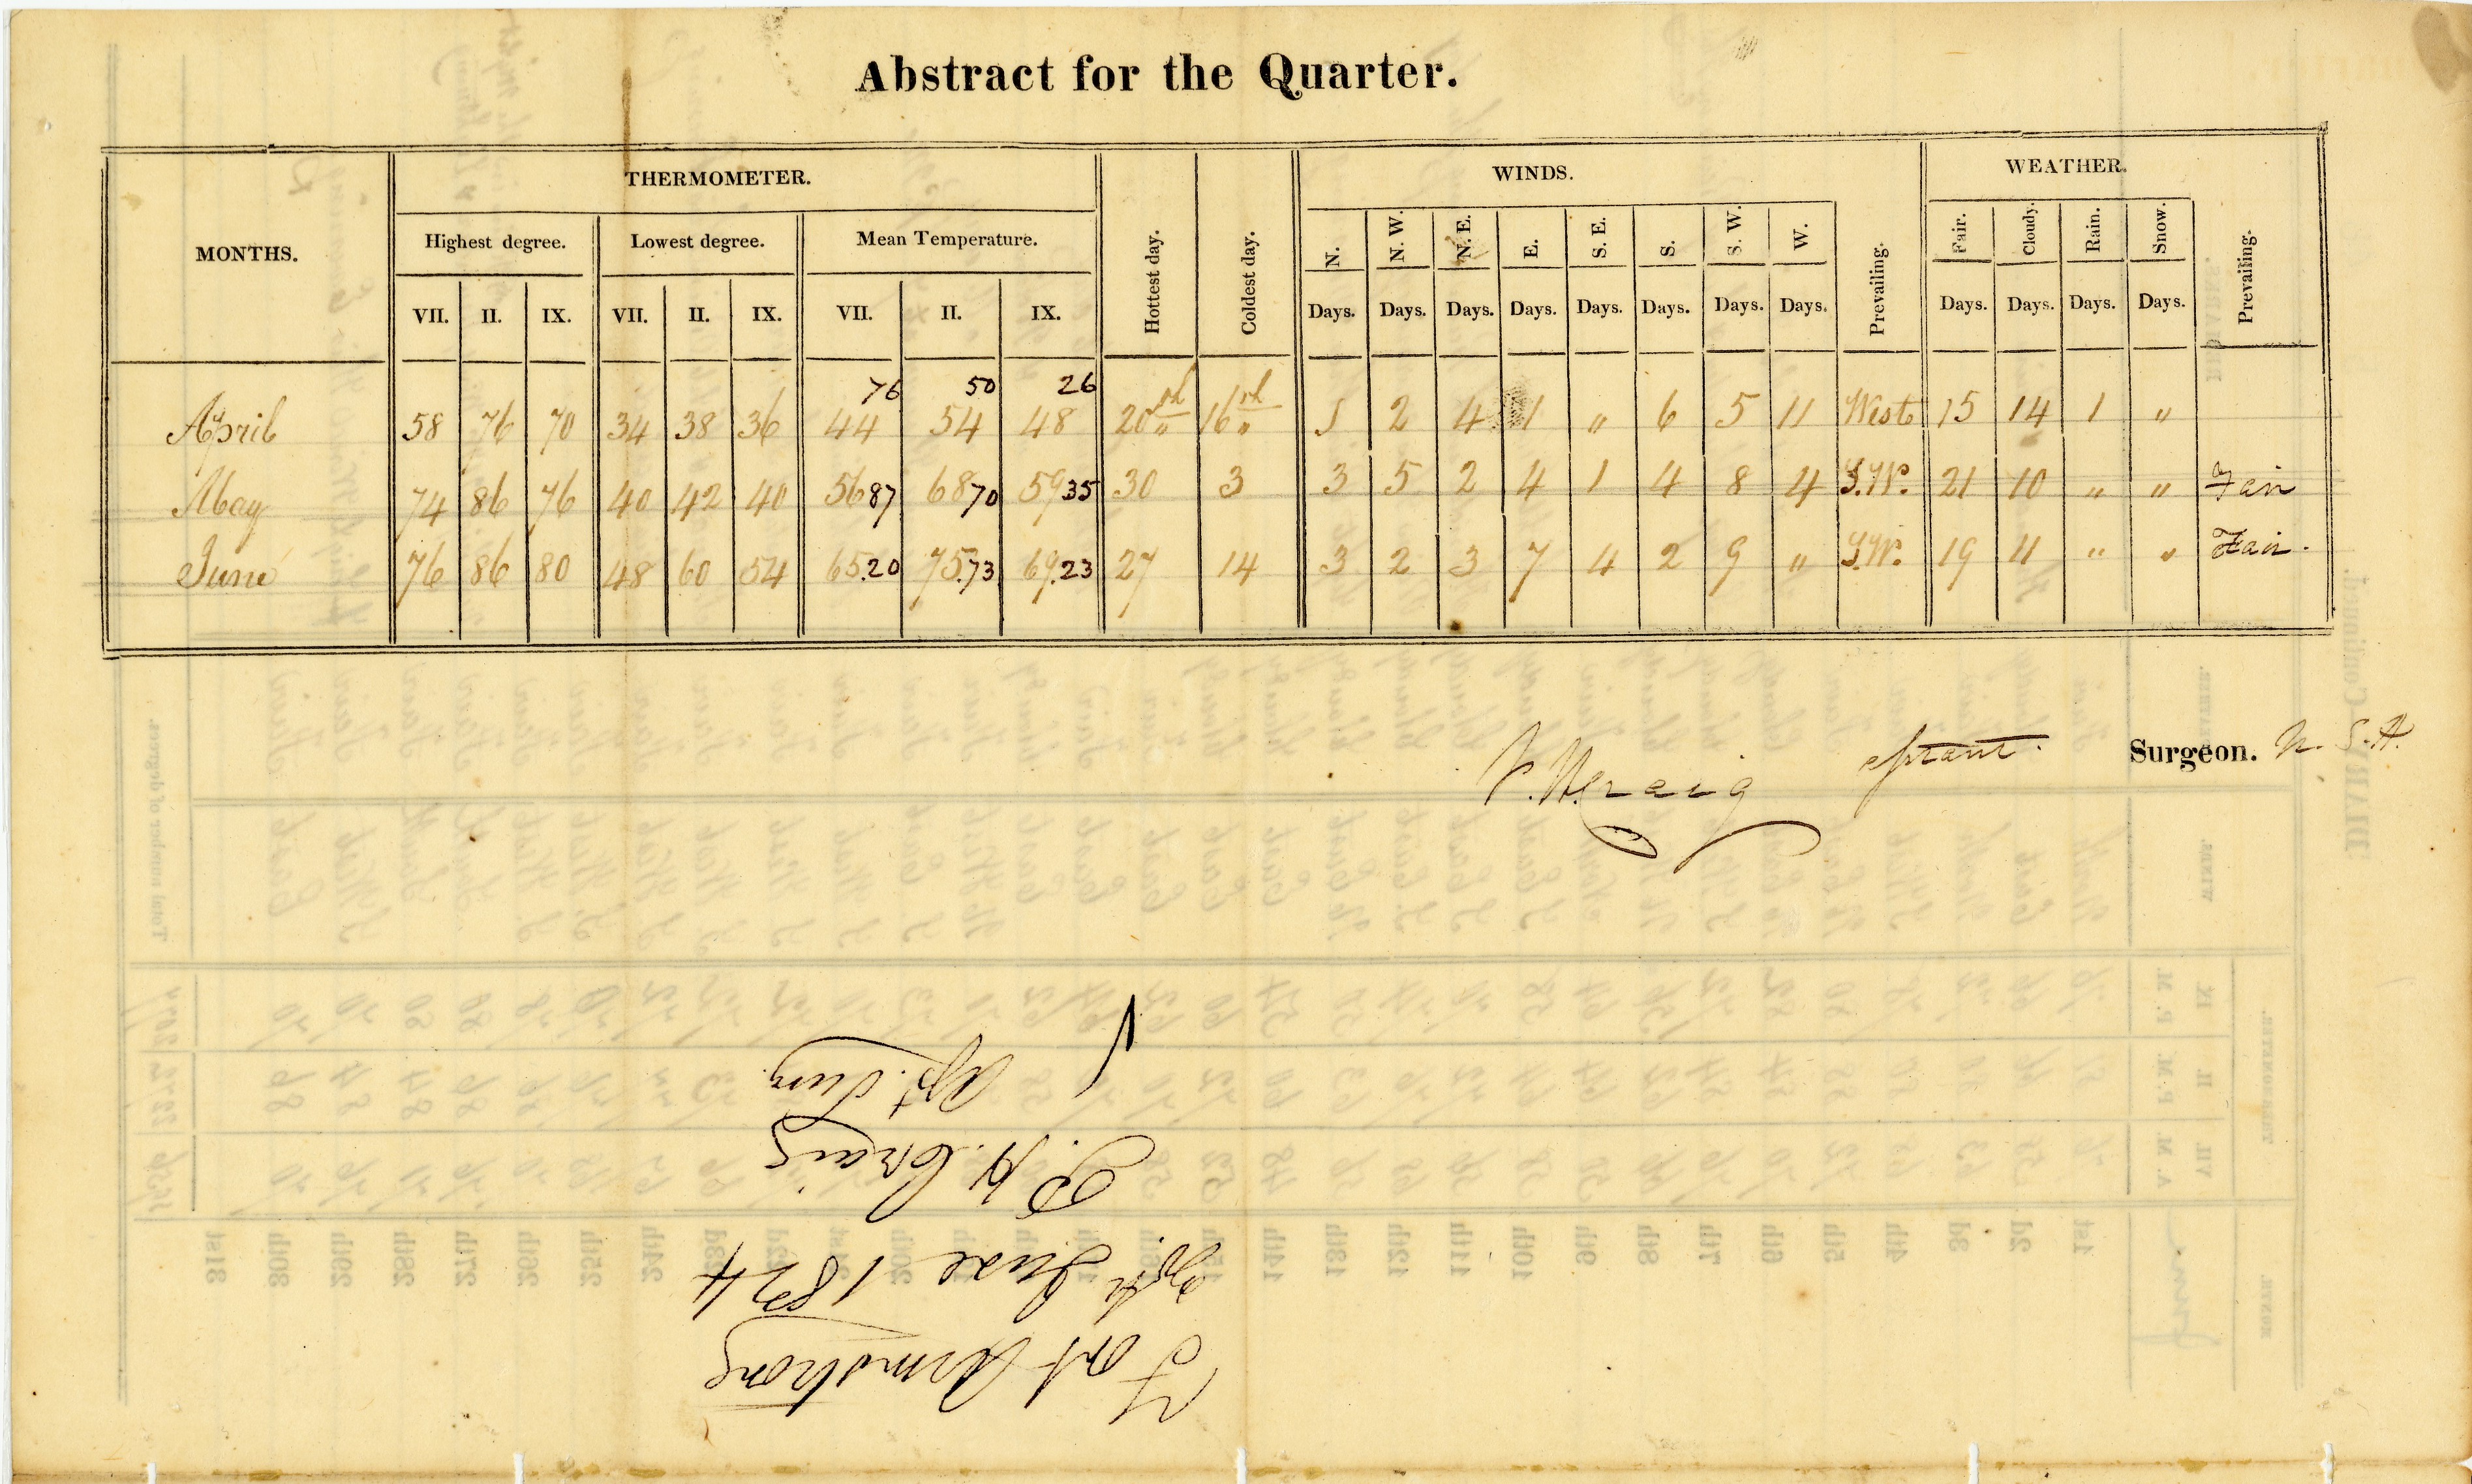 Abstract for the Quarter.
THERMOMETER. WINDS. WEATHER.
MONTHS. Highest degree. Lowest degree. Mean Temperature. Hottest day. Coldest day. N. N. W. N. E. E. S. E. S. S. W. W. Prevailing. Fair. Cloudy. Rain. Snow. Prevailing.
VII. II. IX. VII. II. IX. VII. II. IX. Days. Days. Days. Days. Days. Days. Days. Days. Days. Days. Days. Days.
76 50 26
April 58 76 70 34 38 36 44 54 48 20th 16th 1 2 4 1 " 6 5 11 West 15 14 1 "
May 74 86 76 40 42 40 56 87 68 70 59 35 30 3 3 5 2 4 1 4 8 4 S.W. 21 10 " " Fair
June 76 86 80 48 60 54 65.20 75.73 69.23 27 14 3 2 3 7 4 2 9 " S.W. 19 11 " " Fair.
P. H. Craig Surgeon. U. S. A.
Fort Armstrong
June 1824
P. H. Craig